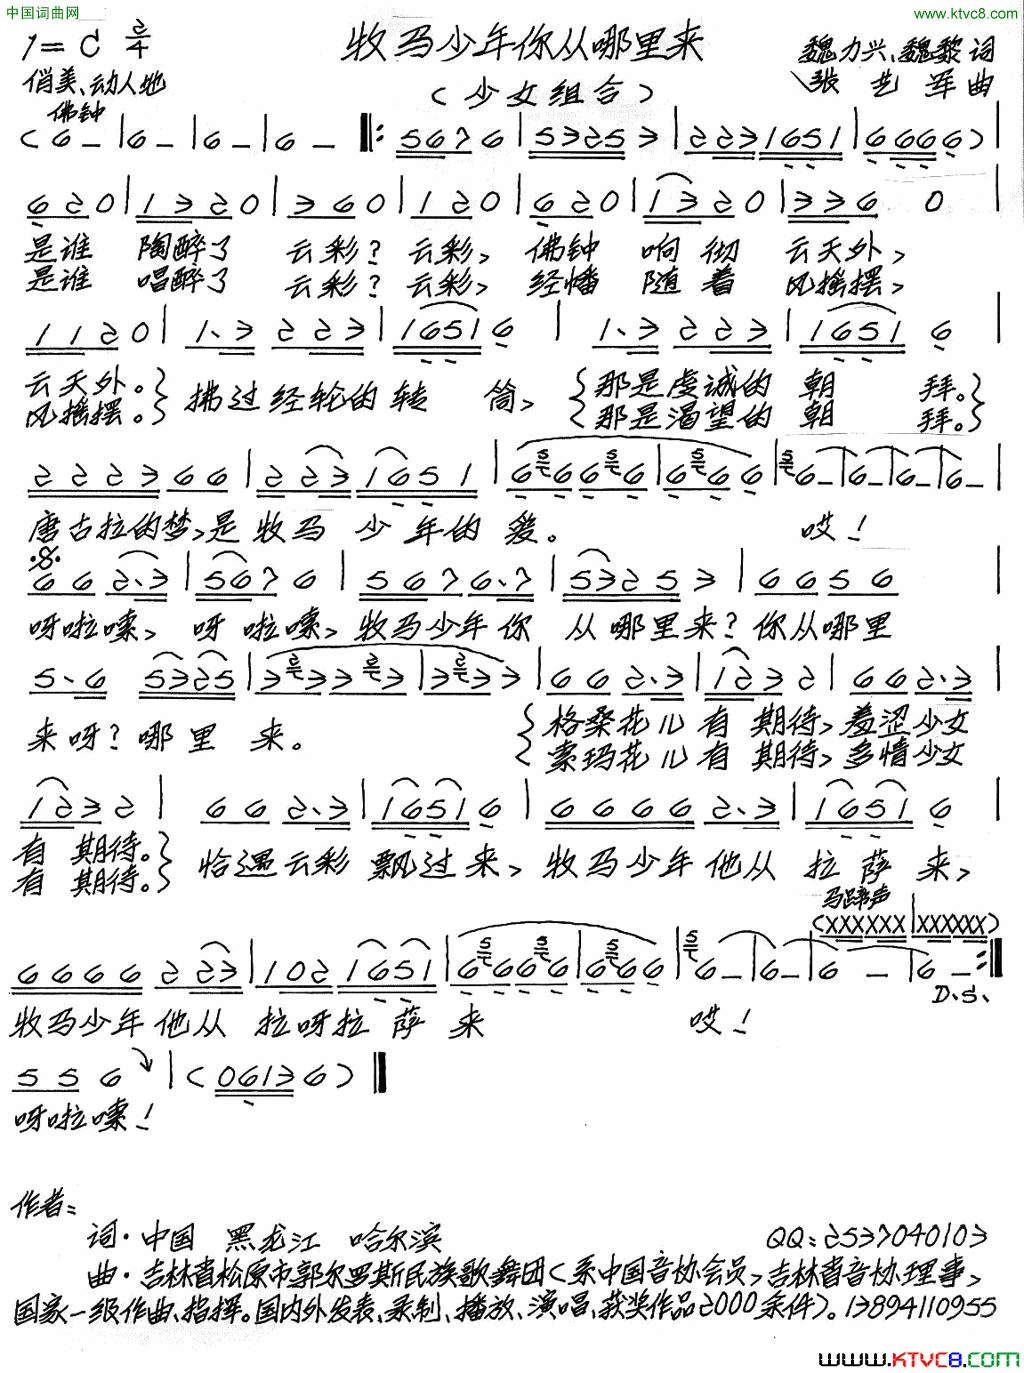 中国词曲网
www.ktvc8.com
1=C 2/4
牧马少年你从哪里来
魏力兴、魏黎 词
俏美、动人地
(少女组合)
张艺军 曲
佛钟
(6 – | 6 – | 6 – | 6 – ‖: 5676 | 53253 | 2231651 | 6666) |
620 | 1320 | 360 | 120 | 620 | 1320 | 336 0 |
是谁 陶醉了 云彩? 云彩, 佛钟 响彻 云天外,
是谁 唱醉了 云彩? 云彩, 经幡 随着 风摇摆,
1120 | 1.3 223 | 16516 | 1.3 223 | 1651 6 |
云天外。 拂过经轮的转 筒, 那是虔诚的 朝 拜。
风摇摆。 那是渴望的 朝 拜。
222366 | 223 1651 | 6 66 6 | 6 6 6 | 6 – | 6 – | 6 – | 6 – |
唐古拉的梦,是牧马 少 年的 爱。 哎!
66 2.3 | 567 6 | 567 6.7 | 5325 3 | 6656 |
呀啦嗦, 呀 啦嗦, 牧马少年你 从哪里来? 你从哪里
5.6 5325 | 3 33 3 | 3 3 3 | 66 2.3 | 123 2 | 662.3 |
来呀? 哪里 来。 格桑花儿 有 期待, 羞涩少女
索玛花儿 有 期待, 多情少女
123 2 | 66 2.3 | 1651 6 | 6666 2.3 | 1651 6 |
有 期待。 恰遇云彩 飘过来, 牧马少年他从 拉 萨 来,
有 期待。
马蹄声
(XXXXXX | XXXXXX)
6666 223 | 102 1651 | 6 66 6 | 6 6 6 | 6 – | 6 – | 6 – | 6 – :‖
D.S.
牧马少年他从 拉呀拉 萨 来 哎!
55 6 | (0613 6) ‖
呀啦嗦!
作者:
词·中国 黑龙江 哈尔滨 QQ:2537040103
曲·吉林省松原市郭尔罗斯民族歌舞团(系中国音协会员,吉林省音协理事,
国家一级作曲、指挥。国内外发表、录制、播放、演唱、获奖作品2000条件)。13894110955
www.KTVC8.com